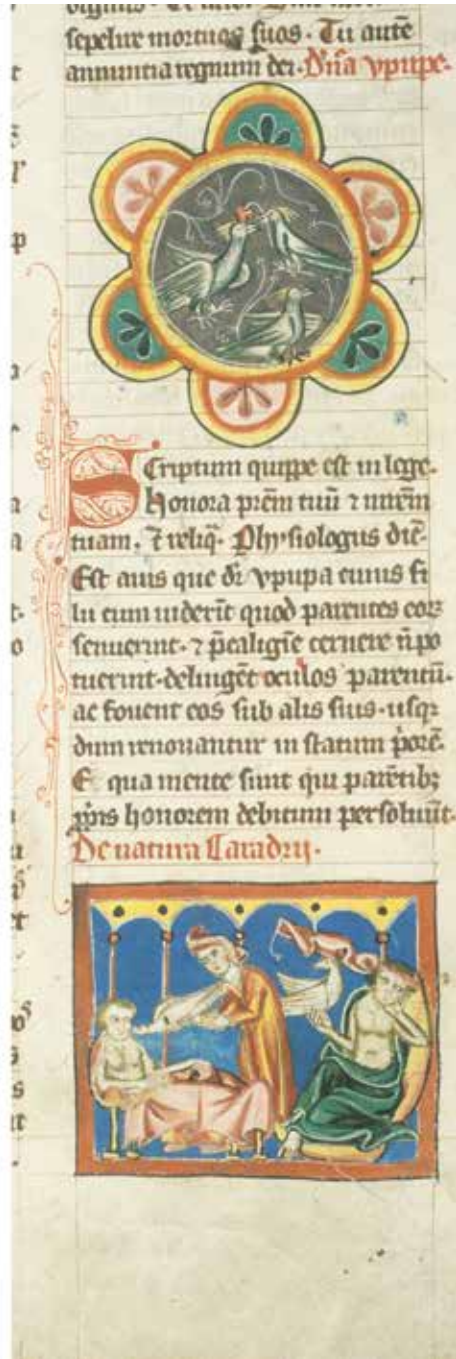 sepelire mortuos suos. Tu autē
annuntia regnum dei. Dn̄a vpupe.
Scriptum quippe est in lege.
Honora prēm tuū ⁊ mrēm
tuam. ⁊ reliq̄. Physiologus dic̄.
Est auis que dr̄ vpupa cuius fi
lii cum uiderīt quod parentes eoꝝ
senuerint. ⁊ p̄ caligīe cernere n̄ po
tuerint. delingēt oculos parentū.
ac fouent eos sub alis suis. usqꝫ
dum renouantur in statum
E qua mente sunt qui parētibꝫ
honorem debitum persoluūt.
De natura Caradrij.